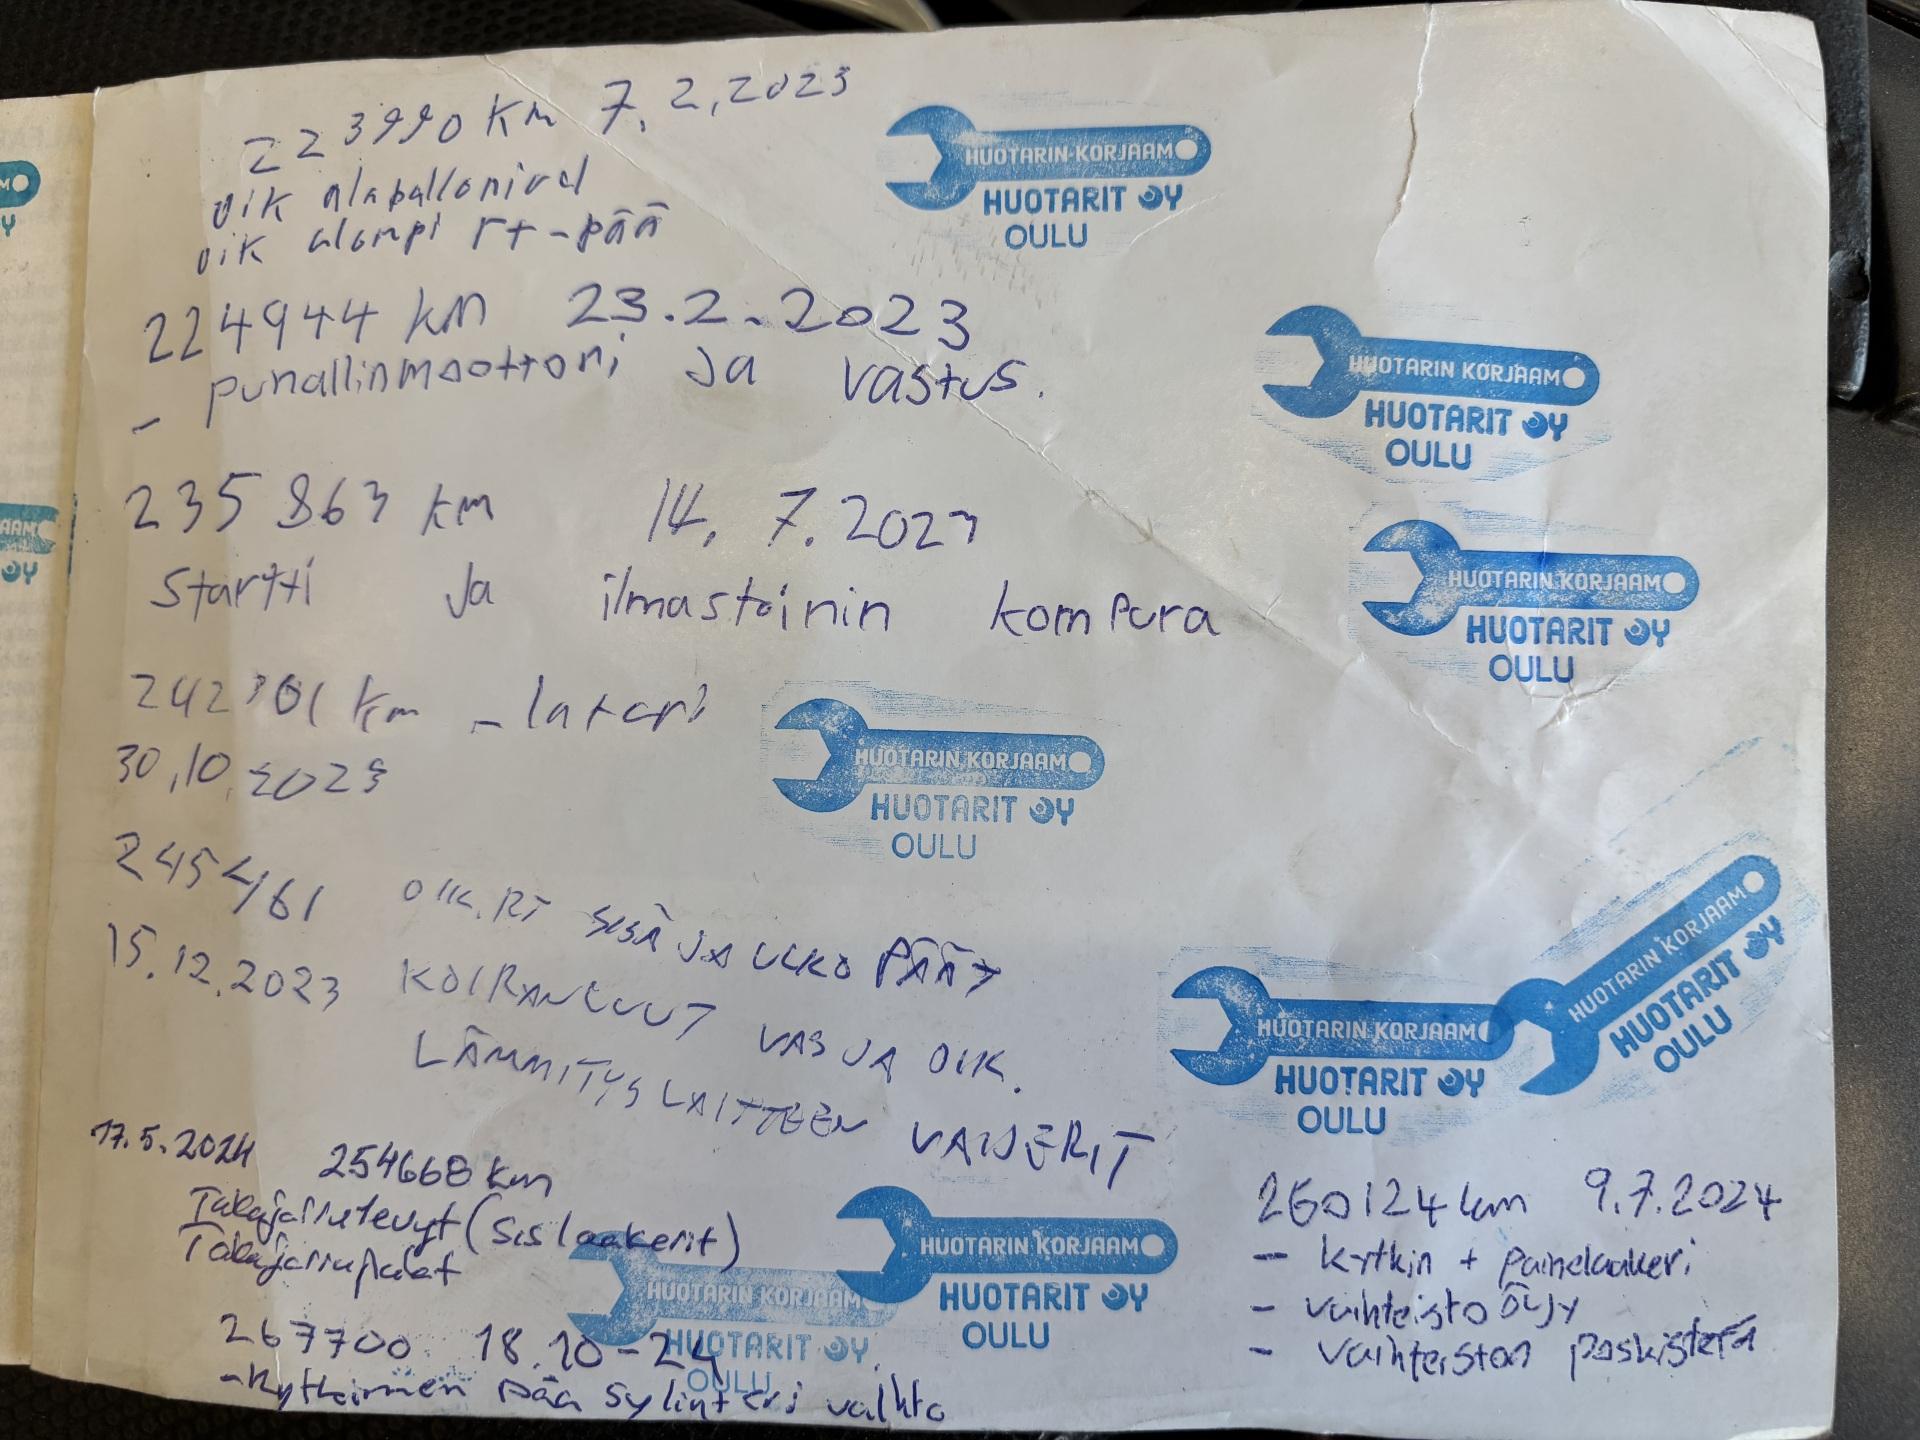 223990 km 7.2.2023
oik alapallonivel
oik alempi rt-pää
HUOTARIN KORJAAMO
HUOTARIT OY
OULU
224944 km 23.2.2023
- puhallinmoottori ja vastus.
HUOTARIN KORJAAMO
HUOTARIT OY
OULU
235 863 km 14.7.2023
Startti ja ilmastoinin kompura
HUOTARIN KORJAAMO
HUOTARIT OY
OULU
242301 km - laturi
30.10.2023
HUOTARIN KORJAAMO
HUOTARIT OY
OULU
245461 OIK. RT SISÄ JA ULKO PÄÄT
15.12.2023 KOIRANLUUT VAS JA OIK.
LÄMMITYSLAITTEEN VAIJERIT
HUOTARIN KORJAAMO
HUOTARIT OY
OULU
HUOTARIN KORJAAMO
HUOTARIT OY
OULU
17.5.2024 254668 km
Takajarrulevyt (sis laakerit)
Takajarrupalat
HUOTARIN KORJAAMO
HUOTARIT OY
OULU
260124 km 9.7.2024
- kytkin + painelaakeri
- vaihteistoöljy
- vaihteiston
267700 18.10-24
- kytkimen pää sylinteri vaihto
HUOTARIN KORJAAMO
HUOTARIT OY
OULU